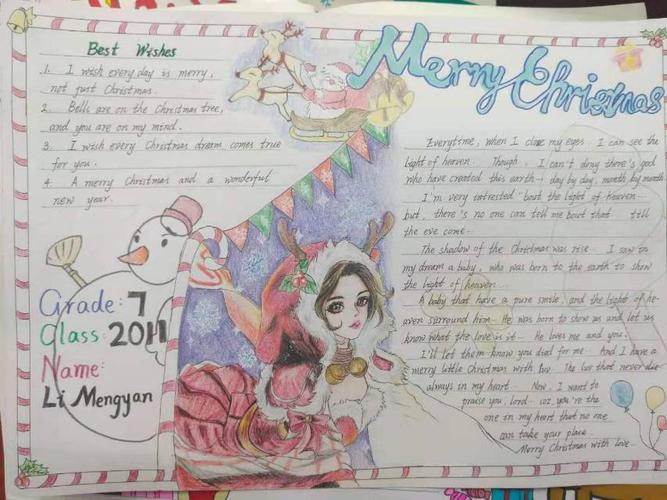 Merry Christmas
Best Wishes
1. I wish every day is merry,
not just Christmas.
2. Bells are on the Christmas tree,
and you are on my mind.
3. I wish every Christmas dream comes true
for you.
4. A merry Christmas and a wonderful
new year.
Grade: 7
Class: 2011
Name:
Li Mengyan
Everytime, when I close my eyes I can see the
light of heaven... Though, I can't deny there's god
who have created this earth - day by day, month by month
I'm very intrested "bout the light of heaven...
but, there's no one can tell me bout that till
the eve come...
The shadow of the Christmas was rise... I saw in
my dream a baby, who was born to the earth to show
the light of heaven...
A baby that have a pure smile, and the light of he-
aven surround him... He was born to show us and let us
know what the love is it... He loves me and you.
I'll let them know you died for me. And I have a
merry little Christmas with luv. The luv that never die
always in my heart... Now, I want to
praise you, lord... coz, you're the
one in my heart that no one
can take your place...
Merry Christmas with love...